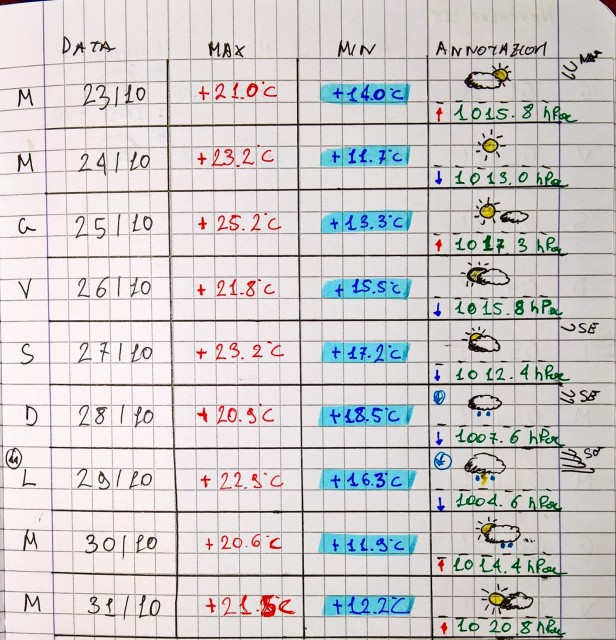 DATA MAX MIN ANNOTAZIONI
M 23/10 +21.0°C +14.0°C
↑ 1015.8 hPa
M 24/10 +23.2°C +11.7°C
↓ 1013.0 hPa
G 25/10 +25.2°C +13.3°C
↑ 1017.3 hPa
V 26/10 +21.8°C +15.5°C
↓ 1015.8 hPa
SE
S 27/10 +23.2°C +17.2°C
↓ 1012.4 hPa
SE
D 28/10 +20.9°C +18.5°C
↓ 1007.6 hPa
L 29/10 +22.9°C +16.3°C
↓ 1004.6 hPa
M 30/10 +20.6°C +11.9°C
↑ 1014.4 hPa
M 31/10 +12.2°C
↑ 1020.8 hPa